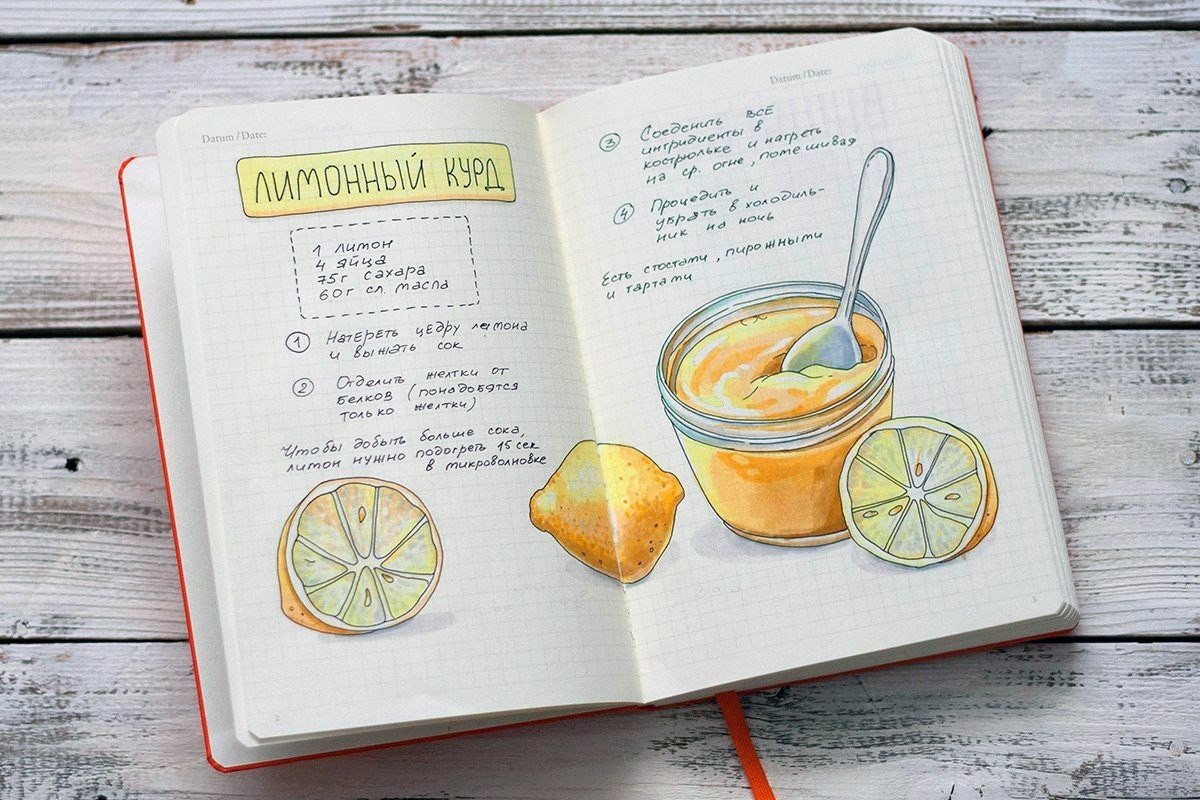 Datum / Date:
ЛИМОННЫЙ КУРД
1 лимон
4 яйца
75г сахара
60г сл. масла
1 Натереть цедру лимона
и выжать сок
2 Отделить желтки от
белков (понадобятся
только желтки)
Чтобы добыть больше сока,
лимон нужно подогреть 15 сек
в микроволновке
2
Datum / Date:
3 Соеденить все
интридиенты в
кострюльке и нагреть
на ср. огне, помешивая
4 Процедить и
убрать в холодиль-
ник на ночь
Есть стостами, пирожными
и тартами